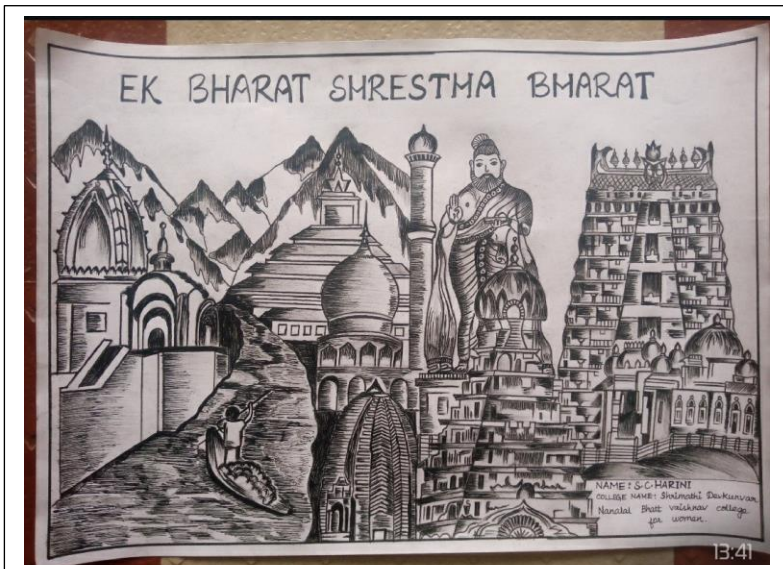 EK BHARAT SHRESTHA BHARAT
NAME: S.C.HARINI
COLLEGE NAME: Shrimathi Devkunvar
Nanalal Bhatt Vaishnav college
for women.
13:41